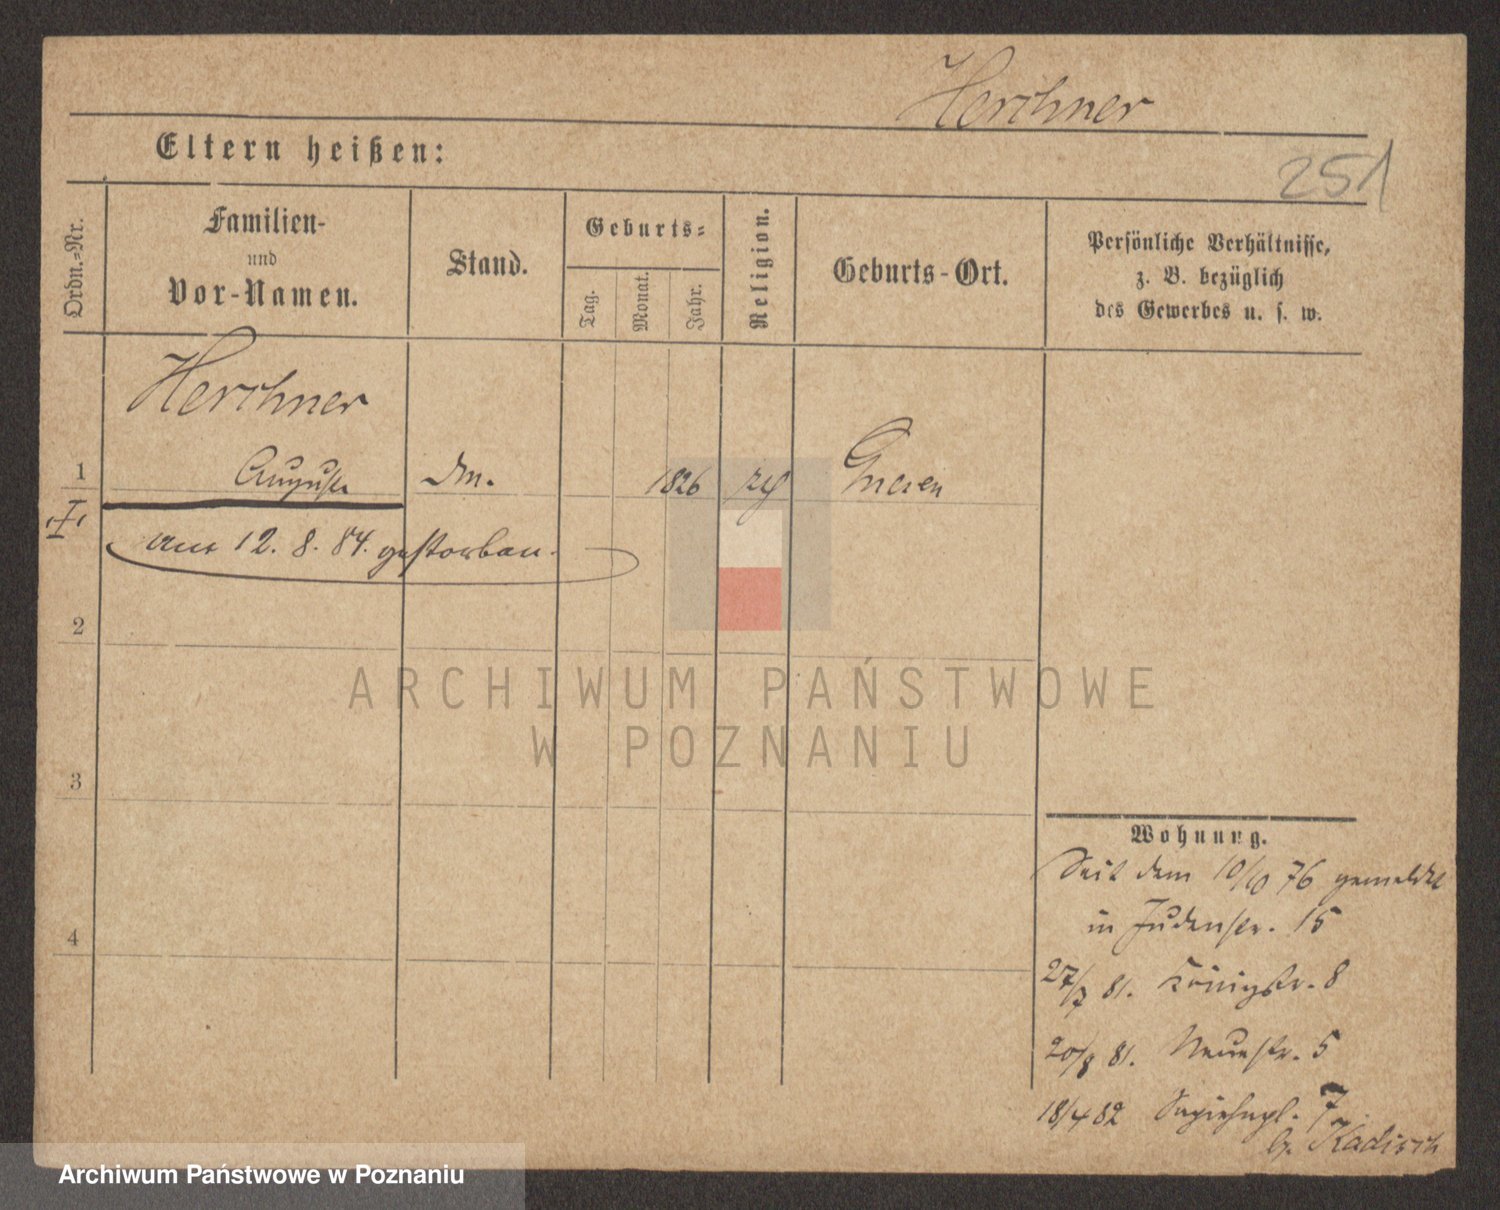 Herchner
251
Eltern heißen:
Ordn.-Nr.
Familien-
und
Vor-Namen.
Stand.
Geburts-
Tag.
Monat.
Jahr.
Religion.
Geburts-Ort.
Persönliche Verhältnisse,
z. B. bezüglich
des Gewerbes u. s. w.
Herchner
1 Auguste 1826 Gnesen
am 12. 8. 84. gestorben.
2
3
4
ARCHIWUM PAŃSTWOWE
W POZNANIU
Wohnung.
Seit dem 10/10 76 gemeldet
in Judenstr. 15
27/7 81. Königstr. 8
20/8 81. Neuestr. 5
18/4 82 Sapiehapl. 7
b. Kadisch
Archiwum Państwowe w Poznaniu